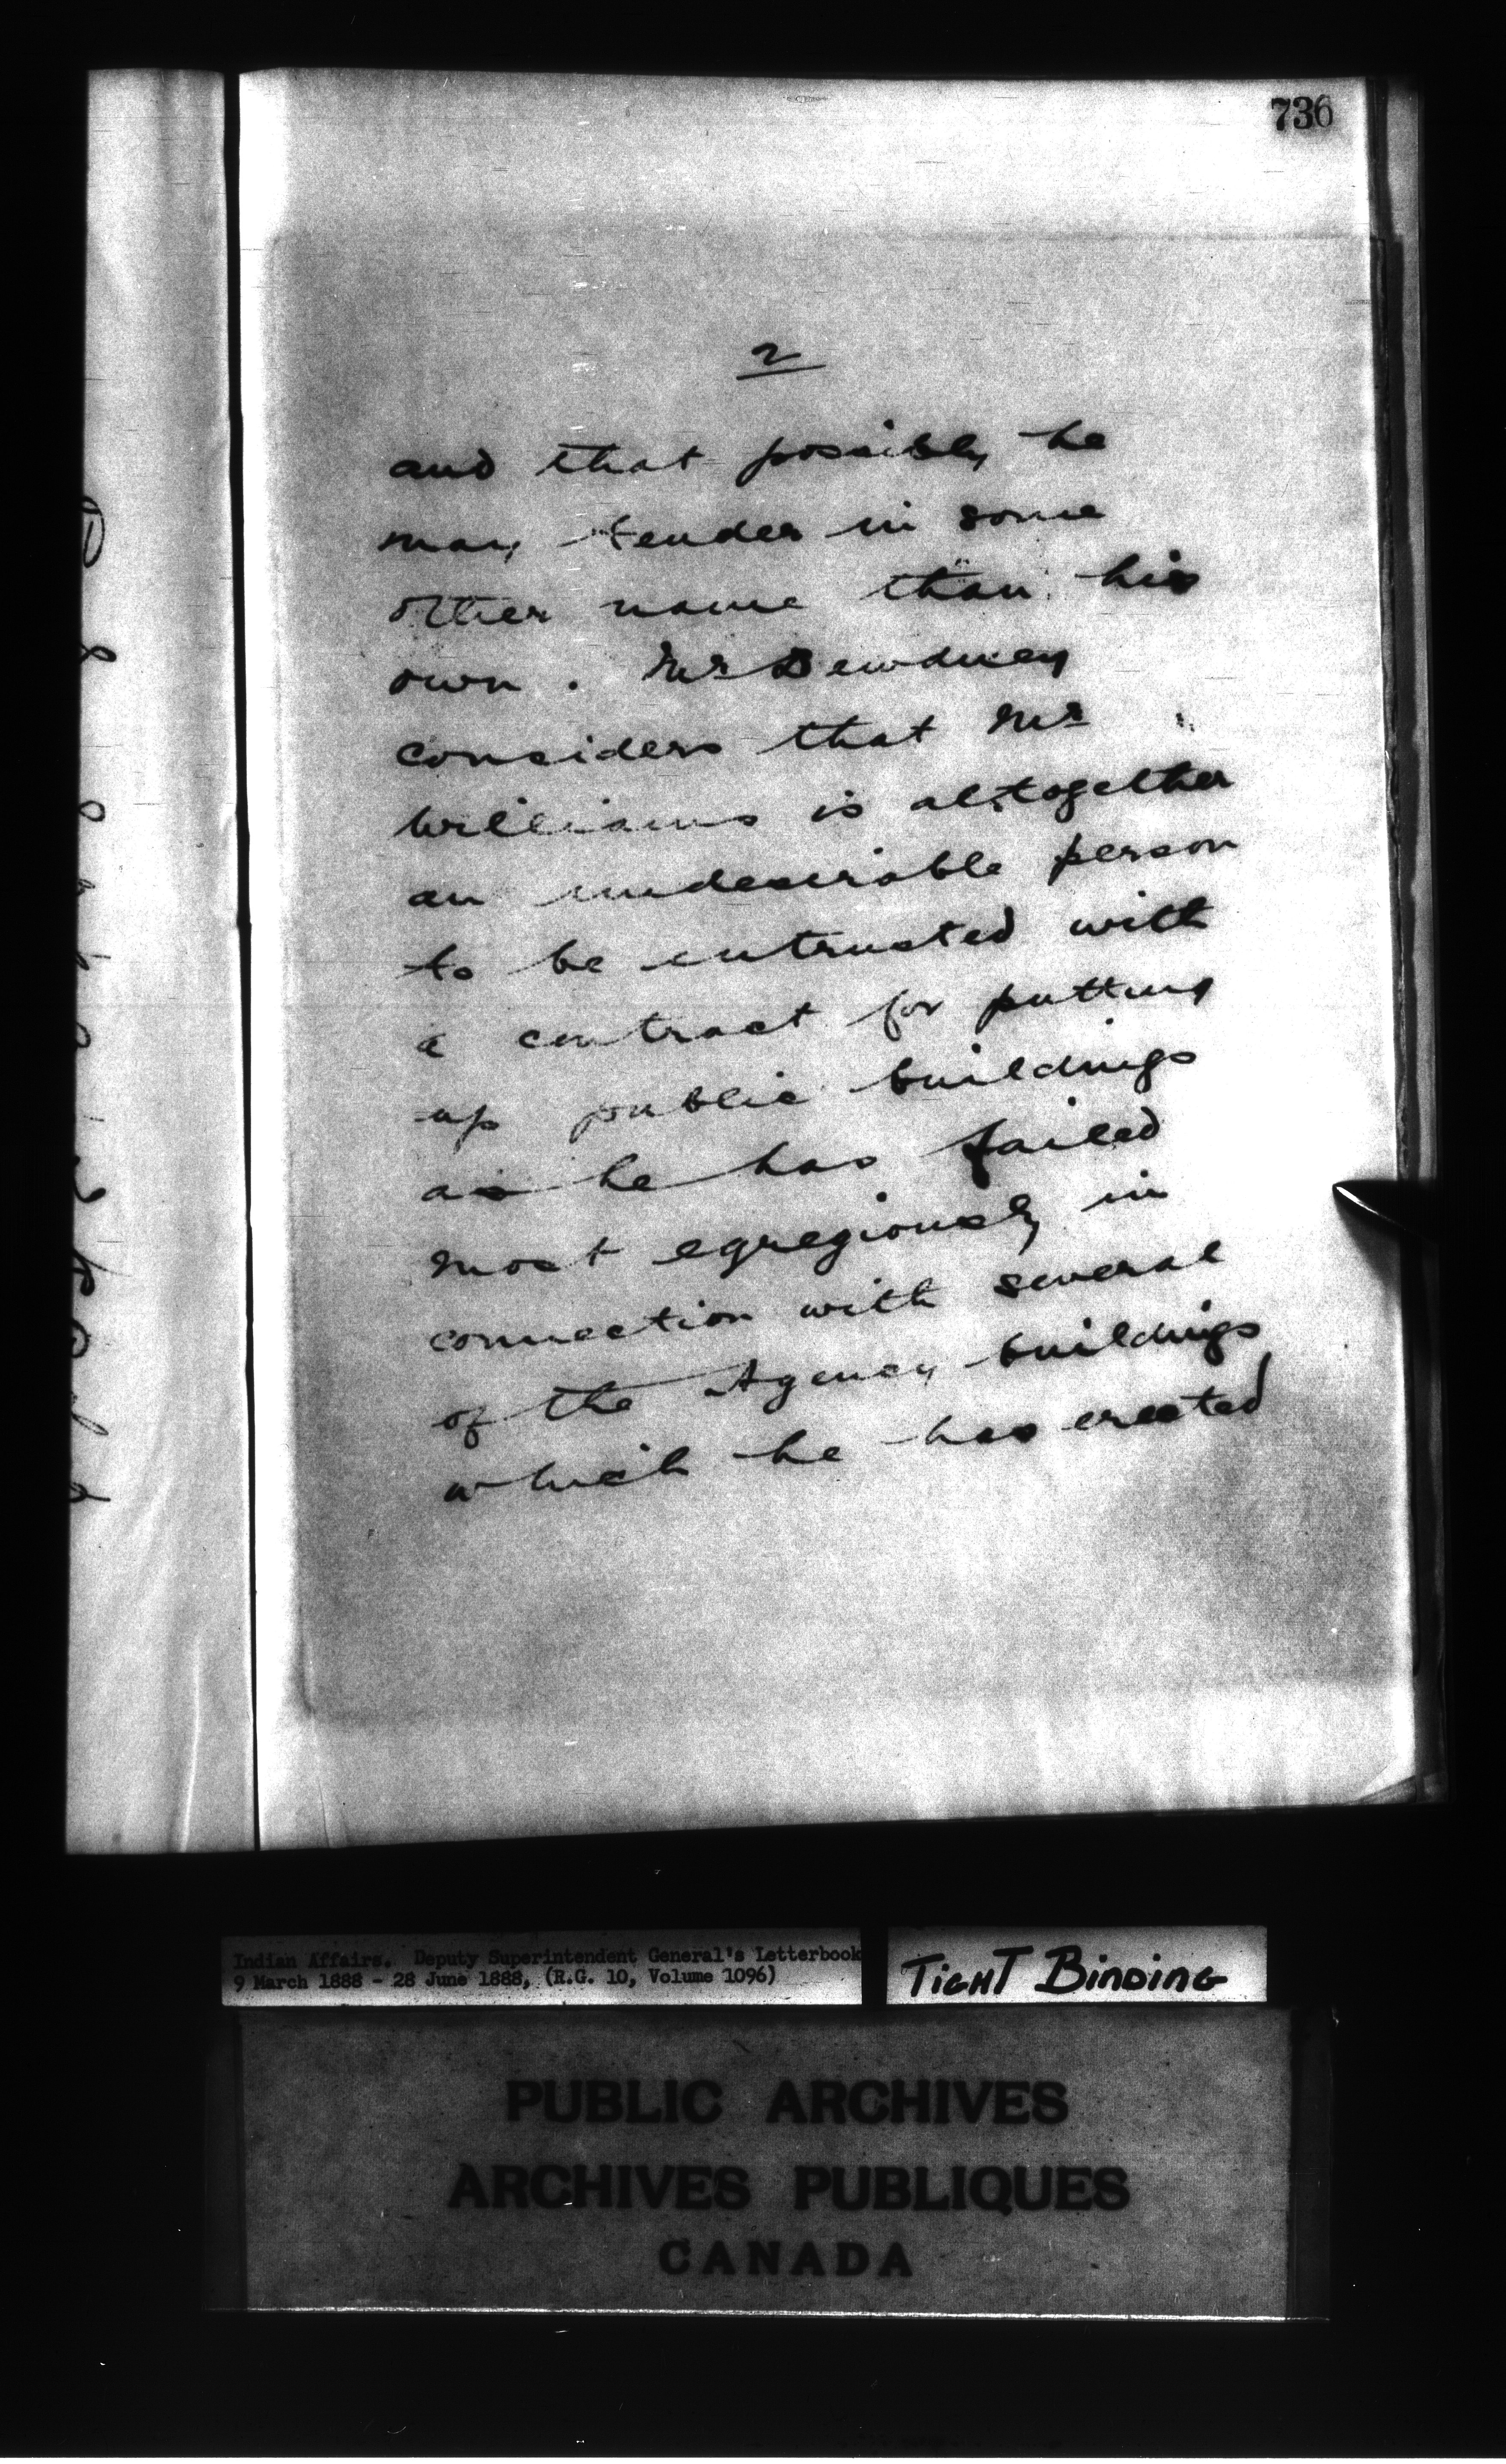 736
2
and that possibly he
may tender in some
other name than his
own. Mr Dewdney
considers that Mr
Williams is altogether
an undesirable person
to be entrusted with
a contract for putting
up public buildings
as he has failed
most egregiously in
connection with several
of the Agency buildings
which he has erected
Indian Affairs. Deputy Superintendent General's Letterbook
9 March 1888 - 28 June 1888, (R.G. 10, Volume 1096)
TIGHT BINDING
PUBLIC ARCHIVES
ARCHIVES PUBLIQUES
CANADA